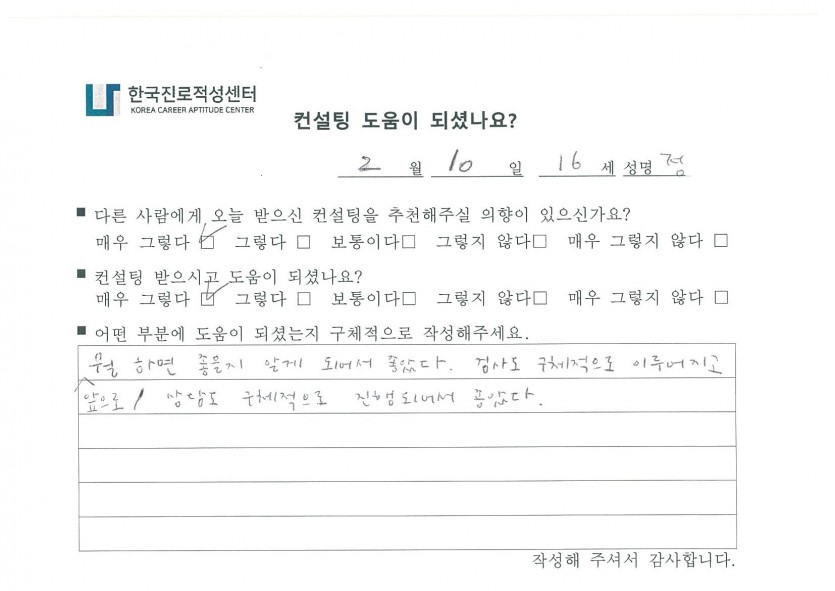 한국진로적성센터
KOREA CAREER APTITUDE CENTER
컨설팅 도움이 되셨나요?
2 월 10 일 16 세 성명 정
■ 다른 사람에게 오늘 받으신 컨설팅을 추천해주실 의향이 있으신가요?
매우 그렇다 ☑ 그렇다 □ 보통이다□ 그렇지 않다□ 매우 그렇지 않다 □
■ 컨설팅 받으시고 도움이 되셨나요?
매우 그렇다 ☑ 그렇다 □ 보통이다□ 그렇지 않다□ 매우 그렇지 않다 □
■ 어떤 부분에 도움이 되셨는지 구체적으로 작성해주세요.
뭘 하면 좋을지 알게 되어서 좋았다. 검사도 구체적으로 이루어지고
앞으로 / 상담도 구체적으로 진행되어서 좋았다.
작성해 주셔서 감사합니다.